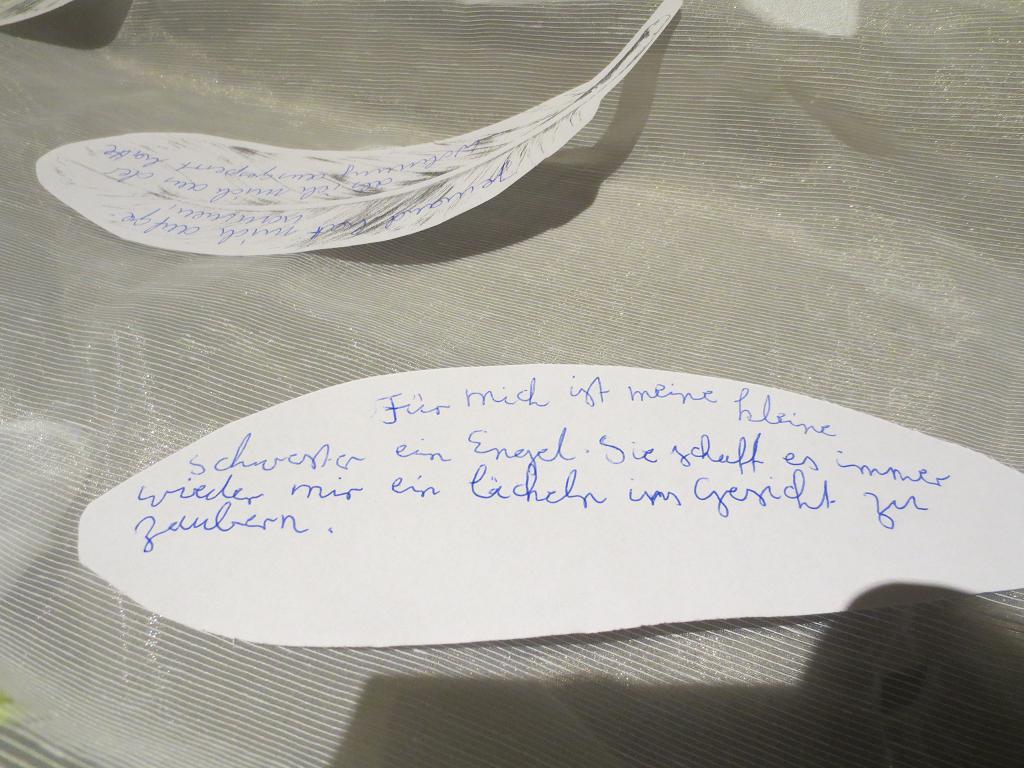 Jemand hat mich aufge-
nommen,
als ich mich aus der
Wohnung ausgesperrt hatte
Für mich ist meine kleine
Schwester ein Engel. Sie schafft es immer
wieder mir ein lächeln ins Gesicht zu
zaubern.